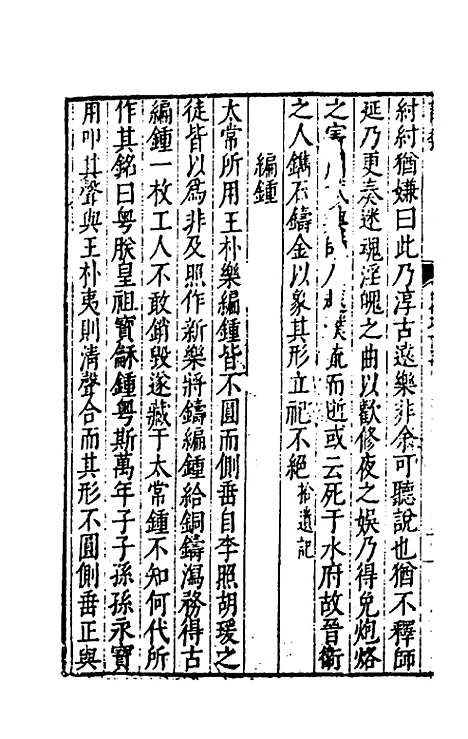 紂紂猶嫌曰此乃淳古遠樂非余可聽說也猶不釋師
延乃更奏迷魂淫魄之曲以歡修夜之娛乃得免炮烙
之害 師 越濮流而逝或云死于水府故晉衛
之人鐫石鑄金以象其形立祀不絕拾遺記
編鍾
太常所用王朴樂編鍾皆不圓而側垂自李照胡瑗之
徒皆以為非及照作新樂將鑄編鍾給銅鑄瀉務得古
編鍾一枚工人不敢銷毀遂藏于太常鍾不知何代所
作其銘曰粵朕皇祖寶龢鍾粵斯萬年子子孫孫永寶
用叩其聲與王朴夷則清聲合而其形不圓側垂正與